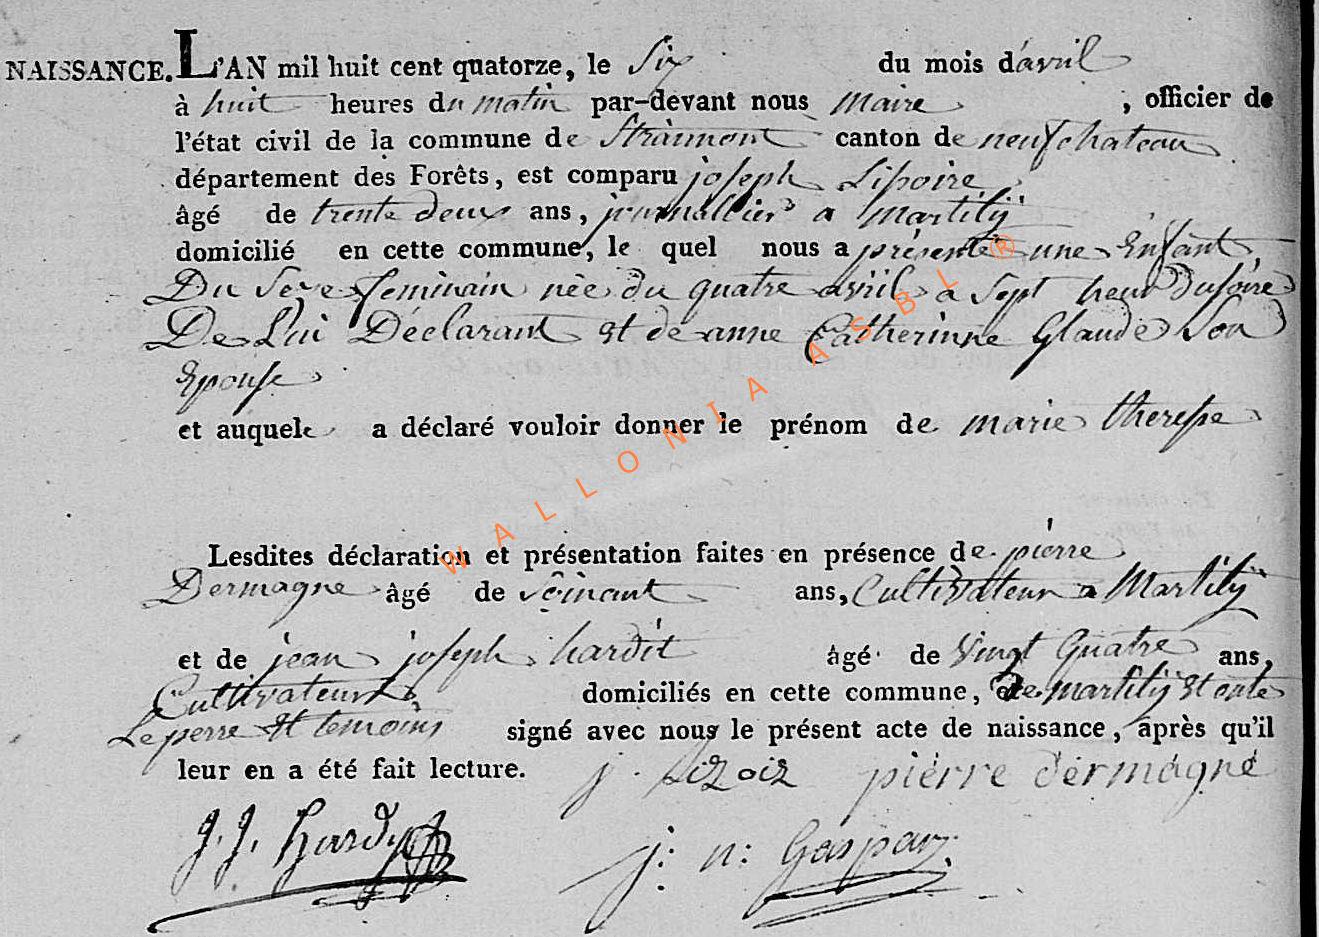 NAISSANCE. L'AN mil huit cent quatorze, le Six du mois d'avril
à huit heures du matin par-devant nous maire , officier de
l'état civil de la commune de Straimont canton de neufchateau
département des Forêts, est comparu joseph
âgé de trente deux ans, journallier a Martilÿ
domicilié en cette commune, le quel nous a presenté une Enfant
Du Sexe feminain née du quatre avril a Sept heur Dusoire
De Lui Déclarant et de anne Catherinne Glaude Son
Epouse
et auquel a déclaré vouloir donner le prénom de marie therese
Lesdites déclaration et présentation faites en présence de pierre
Dermagne âgé de ans, Cultivateur a Martilÿ
et de jean joseph hardit âgé de Vingt Quatre ans,
Cultivateur domiciliés en cette commune, de martilÿ et onte
Le perre et temoins signé avec nous le présent acte de naissance, après qu'il
leur en a été fait lecture. j. pierre dermagne
J. J. Hardy j: n: Gaspar
WALLONIA ASBL ®